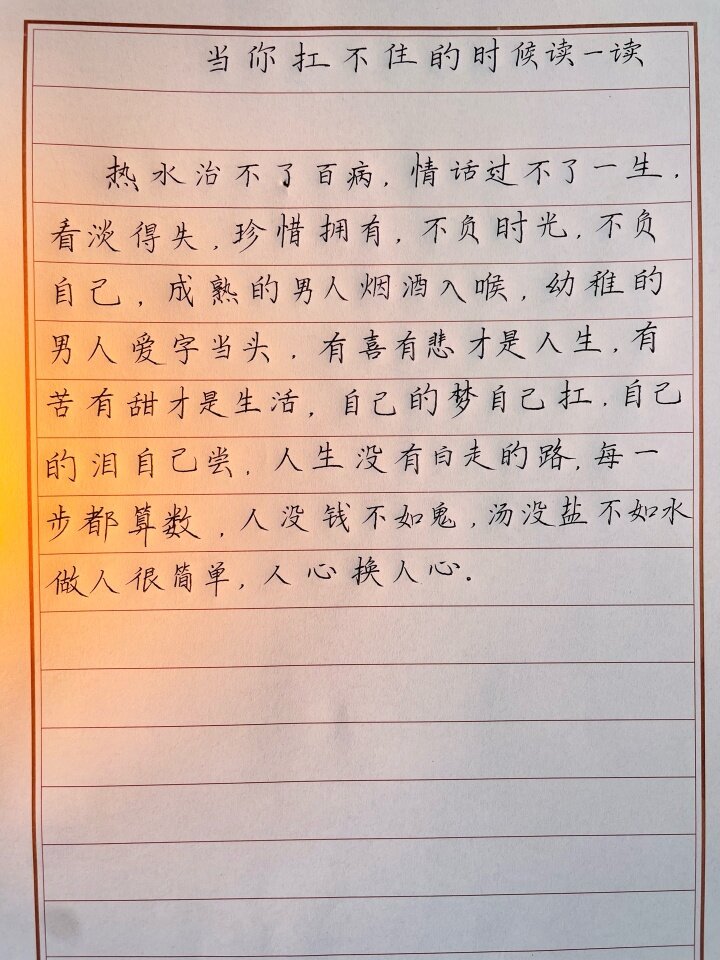 当你扛不住的时候读一读
热水治不了百病，情话过不了一生，
看淡得失，珍惜拥有，不负时光，不负
自己，成熟的男人烟酒入喉，幼稚的
男人爱字当头，有喜有悲才是人生，有
苦有甜才是生活，自己的梦自己扛，自己
的泪自己尝，人生没有白走的路，每一
步都算数，人没钱不如鬼，汤没盐不如水
做人很简单，人心换人心。